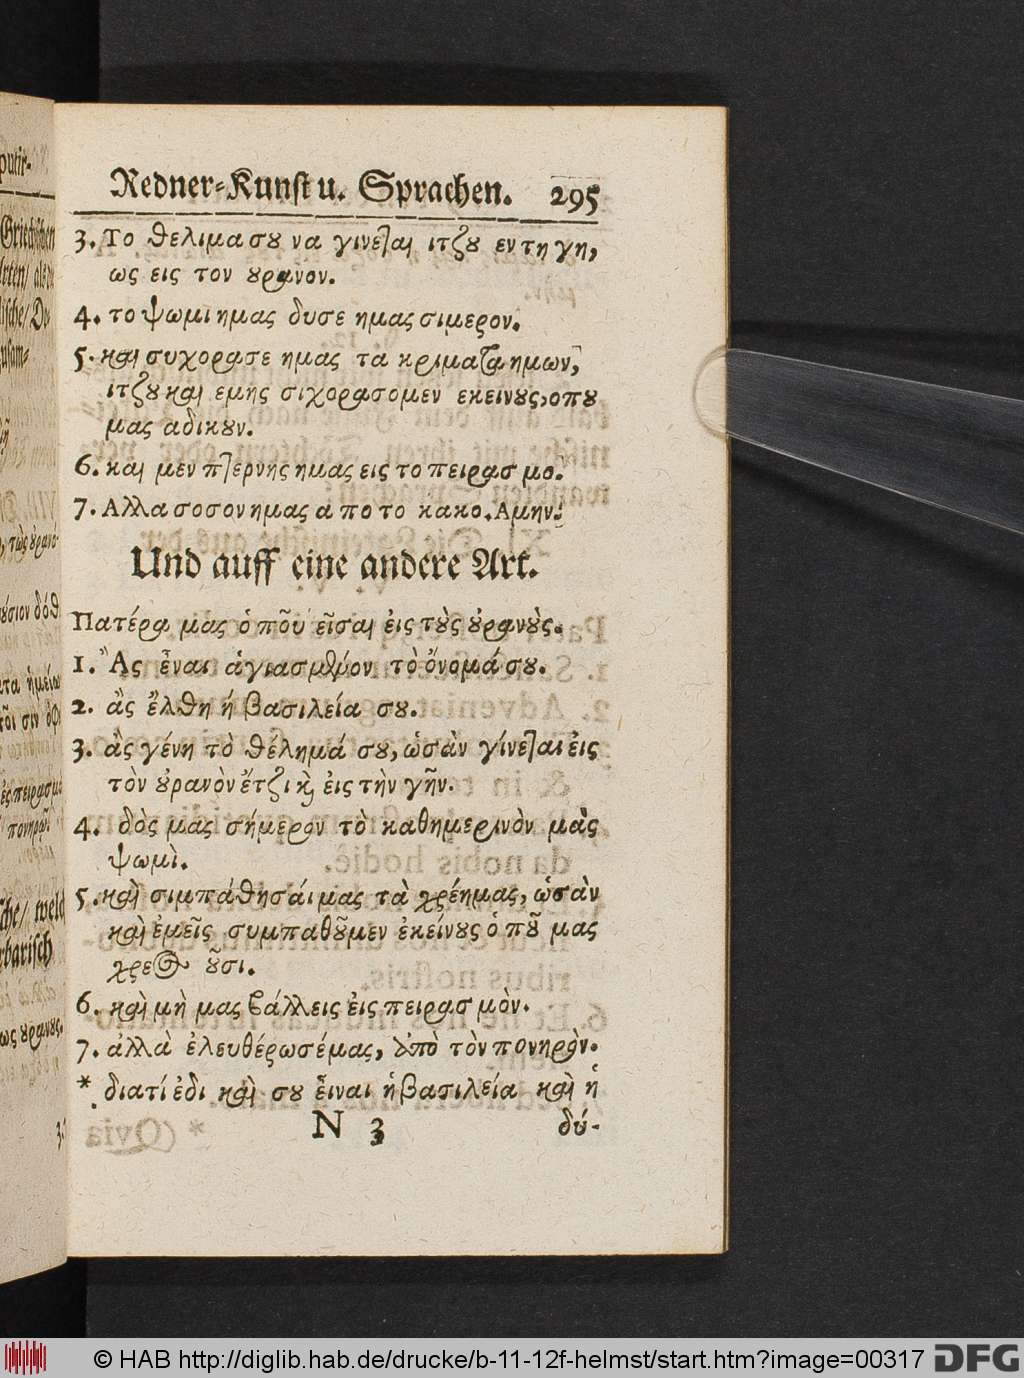 Redner-Kunst u. Sprachen. 295
3. Το θελιμα σου να γινεται ιτζου εν τη γη,
ως εις τον ουρανον.
4. το ψωμι ημας δυσε ημας σιμερον.
5. και συχορασε ημας τα κριματα ημων,
ιτζου και εμης σιχορασομεν εκεινους, οπου
μας αδικουν.
6. και μεν πτερνης ημας εις το πειρασμο.
7. Αλλα σοσον ημας απο το κακο. Αμην.
Und auff eine andere Art.
Πατέρα μας ὁ ποῦ εῖσαι εἰς τοὺς οὐρανοὺς.
1. Ἂς ἶναι ἁγιασμένον τὸ ὄνομά σου.
2. ἂς ἔλθη ἡ βασιλεία σου.
3. ἂς γένη τὸ θέλημά σου, ὡσὰν γίνεται εἰς
τὸν οὐρανὸν ἔτζι καὶ εἰς τὴν γῆν.
4. δὸς μας σήμερον τὸ καθημερινὸν μὰς
ψωμὶ.
5. καὶ σιμπάθησάι μας τὰ χρέημας, ὡσὰν
καὶ ἐμεῖς συμπαθοῦμεν ἐκείνους ὁ ποῦ μας
6. καὶ μὴ μας βάλλεις εἰς πειρασμὸν.
7. ἀλλὰ ἐλευθέρωσέμας, ἀπὸ τὸν πονηρὸν.
* διατί ἐδι καὶ σου εἶναι ἡ βασιλεία καὶ ἡ
N 3 δύ-
Griechischen
* (Qvia
© HAB http://diglib.hab.de/drucke/b-11-12f-helmst/start.htm?image=00317 DFG